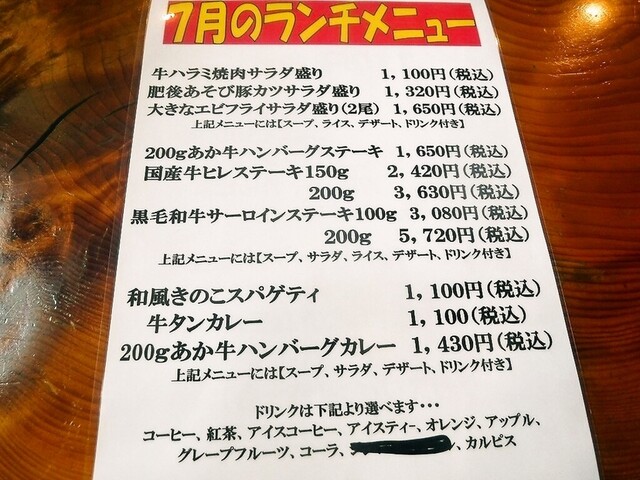 7月のランチメニュー
牛ハラミ焼肉サラダ盛り 1,100円(税込)
肥後あそび豚カツサラダ盛り 1,320円(税込)
大きなエビフライサラダ盛り(2尾) 1,650円(税込)
上記メニューには【スープ、ライス、デザート、ドリンク付き】
200gあか牛ハンバーグステーキ 1,650円(税込)
国産牛ヒレステーキ150g 2,420円(税込)
200g 3,630円(税込)
黒毛和牛サーロインステーキ100g 3,080円(税込)
200g 5,720円(税込)
上記メニューには【スープ、サラダ、ライス、デザート、ドリンク付き】
和風きのこスパゲティ 1,100円(税込)
牛タンカレー 1,100(税込)
200gあか牛ハンバーグカレー 1,430円(税込)
上記メニューには【スープ、サラダ、デザート、ドリンク付き】
ドリンクは下記より選べます・・・
コーヒー、紅茶、アイスコーヒー、アイスティー、オレンジ、アップル、
グレープフルーツ、コーラ、、カルピス